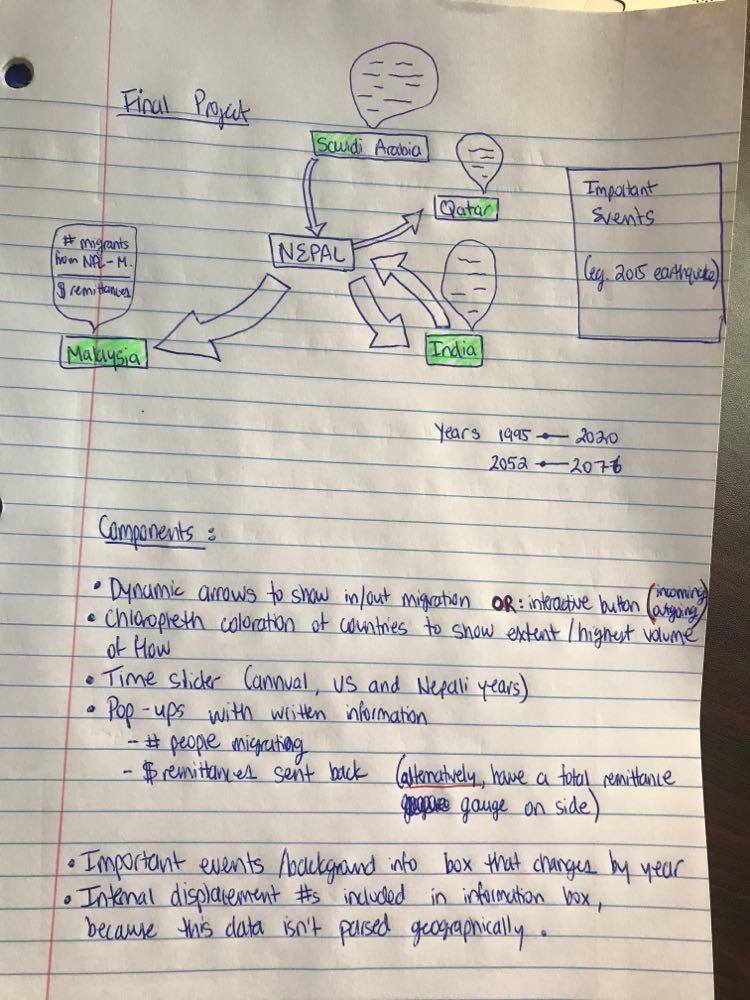 Final Project
Saudi Arabia
Qatar
Important
Events
(eg. 2015 earthquake)
NEPAL
# migrants
from NPL-M.
$ remittances
Malaysia
India
Years 1995 — 2020
2052 — 2076
Components :
• Dynamic arrows to show in/out migration OR: interactive button (incoming/outgoing)
• Chloropleth coloration of countries to show extent / highest volume
of flow
• Time slider (annual, US and Nepali years)
• Pop-ups with written information
- # people migrating
- $ remittances sent back (alternatively, have a total remittance
gauge on side)
• Important events /background info box that changes by year
• Internal displacement #s included in information box,
because this data isn't parsed geographically.